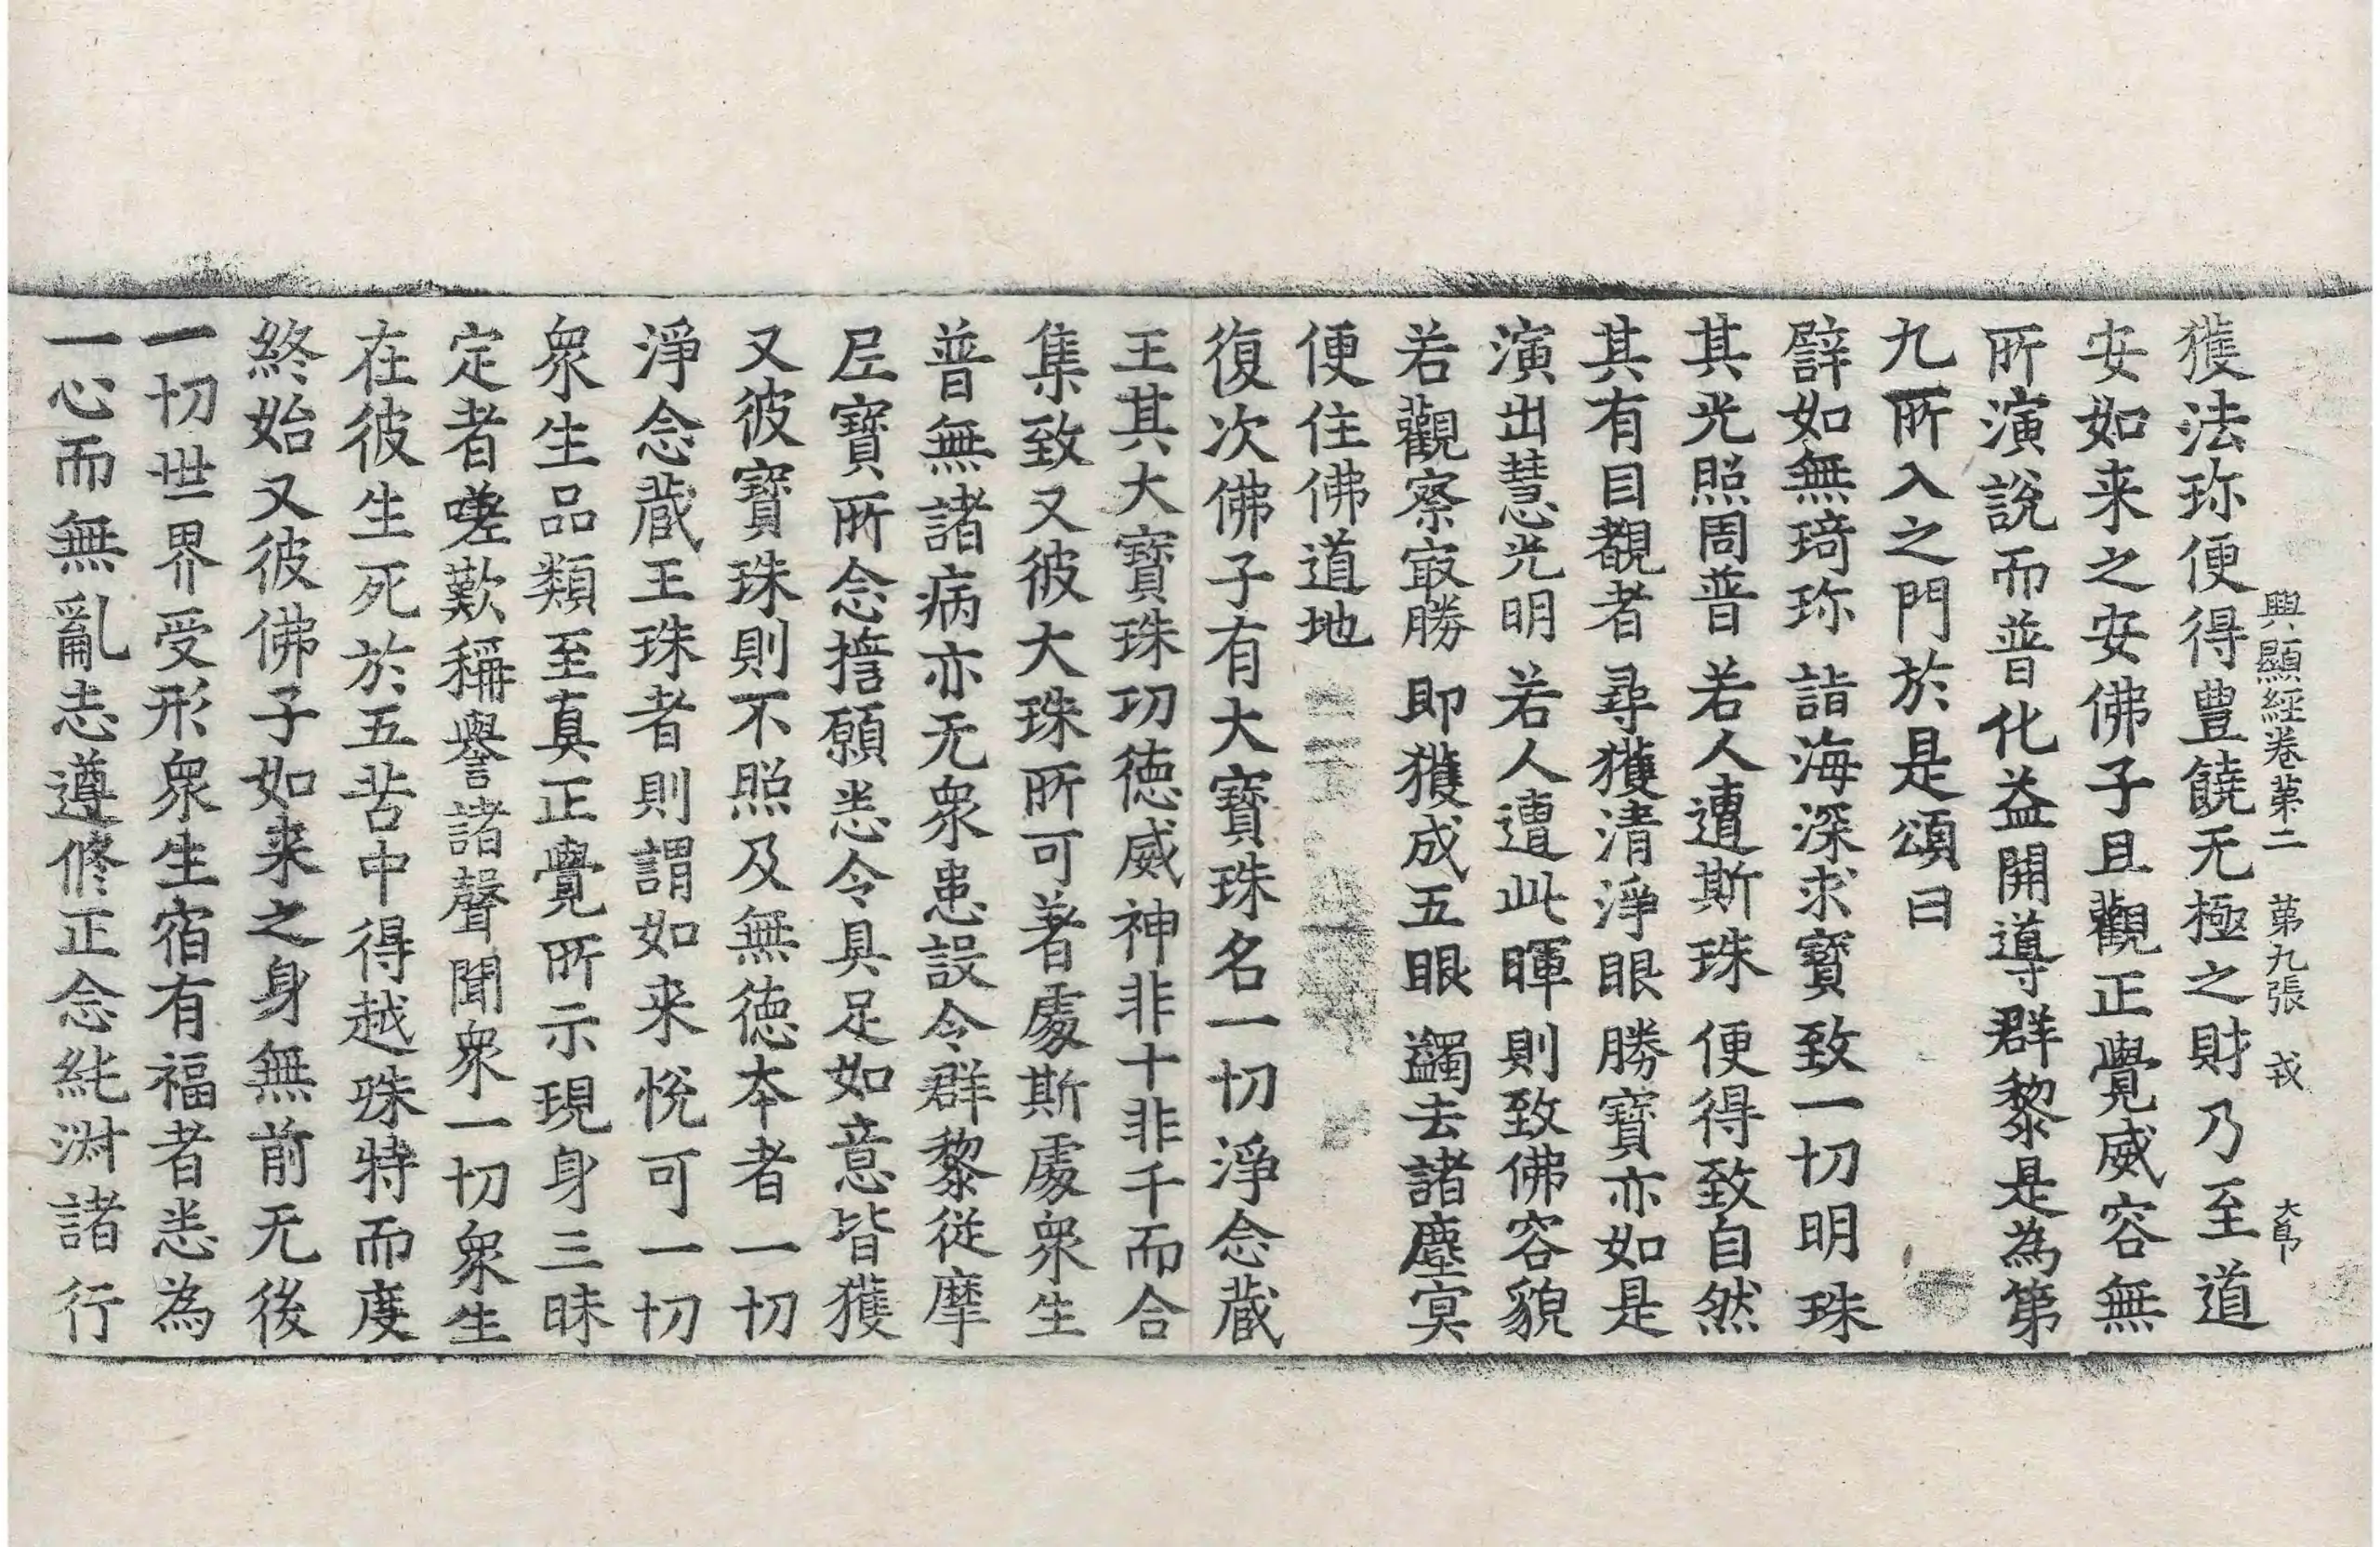 興顯經卷苐二 苐九張 戎 大㠯
獲法珎便得豊饒无極之財乃至道
安如来之安佛子且觀正覺威容無
所演說而普化益開導群黎是為第
九所入之門於是頌曰
譬如無琦珎 詣海深求寶 致一切明珠
其光照周普 若人遭斯珠 便得致自然
其有目覩者 尋獲清淨眼 勝寶亦如是
演出慧光明 若人遭此暉 則致佛容貌
若觀察㝡勝 即獲成五眼 蠲去諸塵冥
便住佛道地
復次佛子有大寶珠名一切淨念蔵
王其大寶珠功徳威神非十非千而合
集致又彼大珠所可著處斯處衆生
普無諸病亦无衆患設令群黎從摩
尼寶所念擔願恙令具足如意皆獲
又彼寶珠則不照及無徳本者一切
淨念蔵王珠者則謂如来悅可一切
衆生品類至真正覺所示現身三昧
定者嗟歎稱譽諸聲聞衆一切衆生
在彼生死於五苦中得越殊特而度
終始又彼佛子如来之身無前无後
一切世界受形衆生宿有福者恙為
一心而無亂志遵修正念純淑諸行